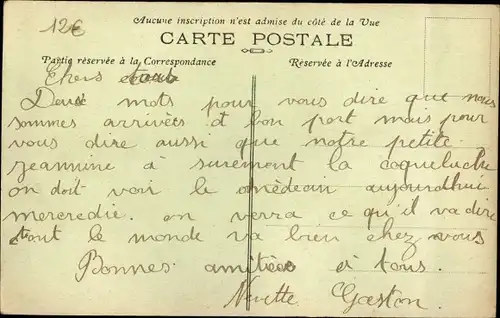 12€
Aucune inscription n'est admise du côté de la Vue
CARTE POSTALE
Partie réservée à la Correspondance
Réservée à l'Adresse
Chers tous
Deux mots pour vous dire que nous
sommes arrivées a bon port mais pour
vous dire aussi que notre petite
Jeannine à surement la coqueluche
on doit voir le médecin aujourdhui
mercredie. on verra ce qu'il va dire
tout le monde va bien chez vous
Bonnes amitiées a tous.
Gaston.